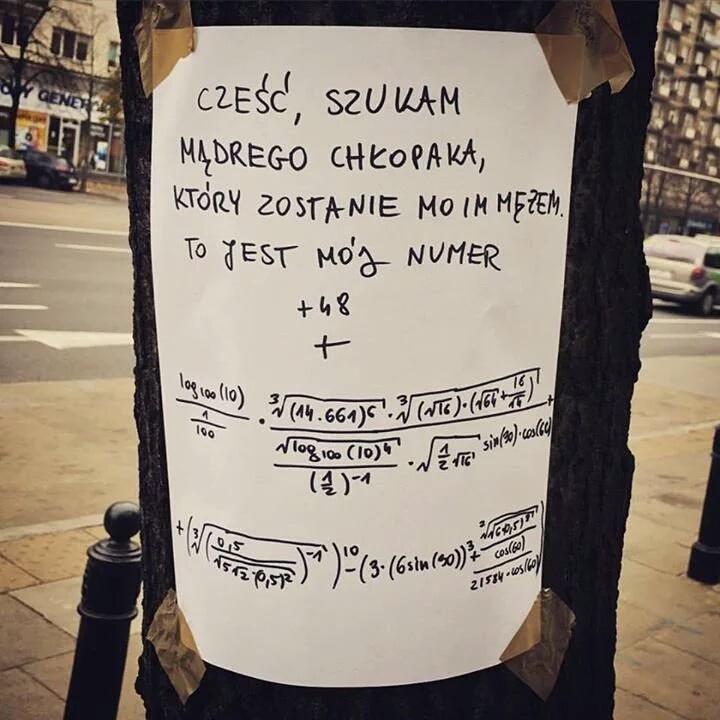 CZEŚĆ, SZUKAM
MĄDREGO CHŁOPAKA,
KTÓRY ZOSTANIE MOIM MĘŻEM.
TO JEST MÓJ NUMER
+48
+
log100(10) / (1/100) · ∛(14.661)⁶ · ∛((√16)·(√64+16/14)) / (√log100(10)⁴ / (1/2)⁻¹ · √(1/2 √16) sin(90)·cos(60)) +
+ (∛(0,5 / √5√2·(0,5)²)⁻¹)¹⁰ - (3·(6sin(90))³ +
cos(60)
21584·cos(60)